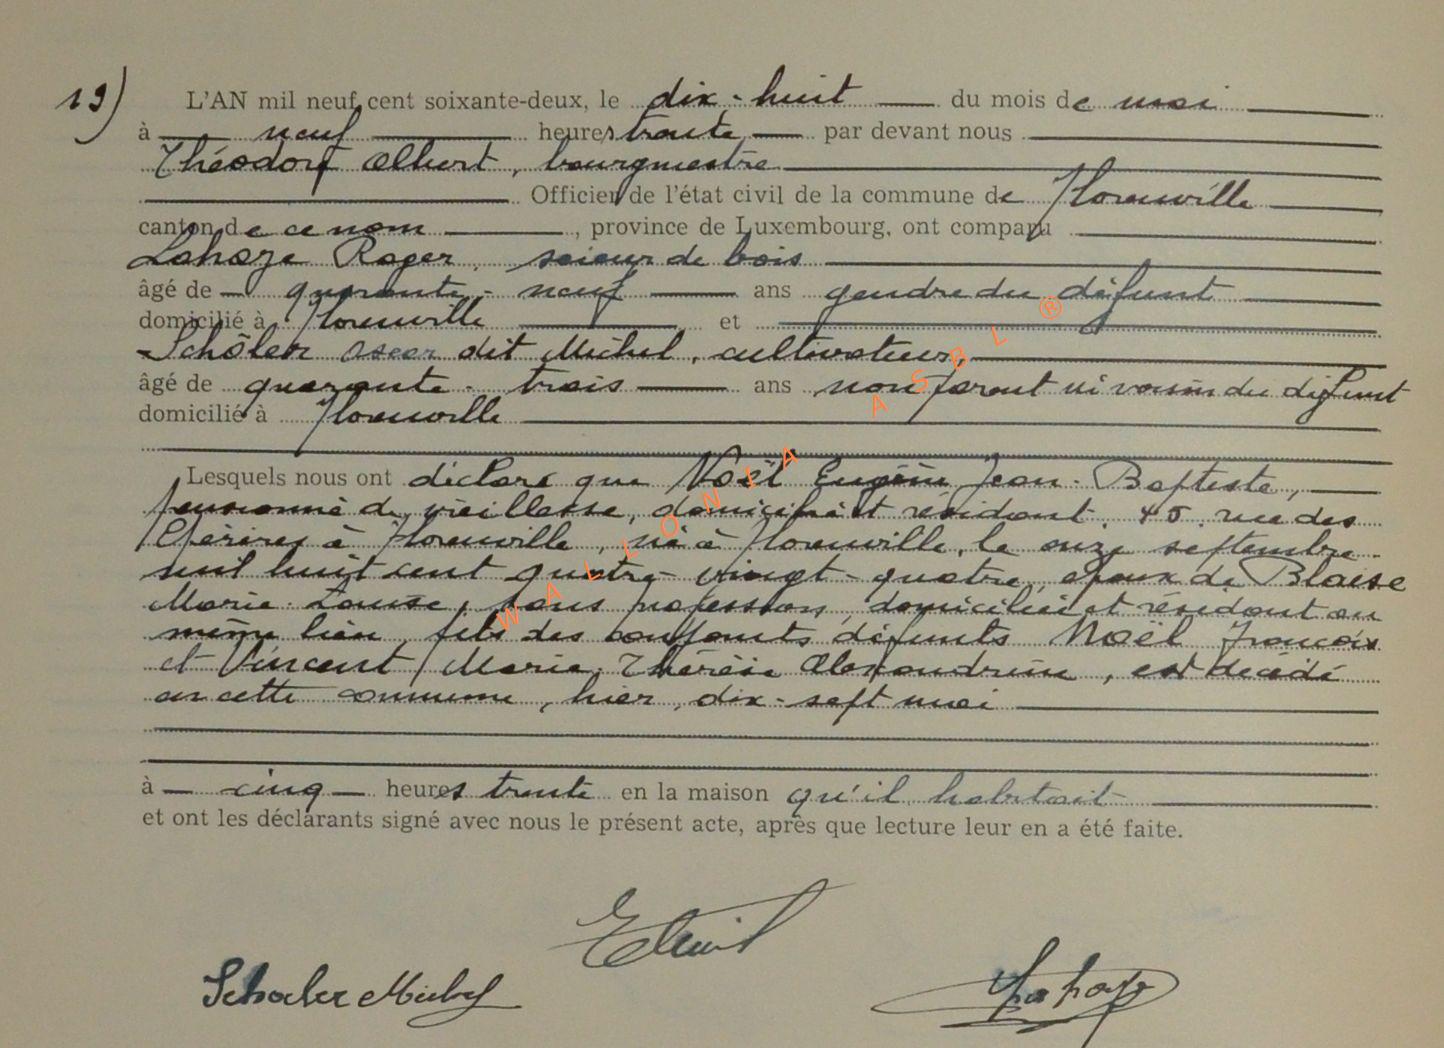 19) L'AN mil neuf cent soixante-deux, le dix-huit du mois de mai
à neuf heures trente par devant nous
Théodorf Albert, bourgmestre
Officier de l'état civil de la commune de Florenville
canton de ce nom, province de Luxembourg, ont comparu
Lahaze Roger, scieur de bois
âgé de quarante-neuf ans gendre du défunt
domicilié à Florenville et
Schôler oscar dit Michel, cultivateur,
âgé de quarante-trois ans non parent ni voisin du défunt
domicilié à Florenville
Lesquels nous ont déclaré que Noël Eugène Jean-Baptiste,
pensionné de vieillesse, domicilié et résidant, 45, rue des
à Florenville, né à Florenville, le onze septembre
mil huit cent quatre-vingt-quatre, époux de Blaise
Marie Louise, sans profession, domiciliée et résidant au
même lieu, fils des conjoints défunts Noël François
et Vincent Marie Thérèse Alexandrine, est décédé
en cette commune, hier, dix-sept mai
à cinq heures trente en la maison qu'il habitait
et ont les déclarants signé avec nous le présent acte, après que lecture leur en a été faite.
Schoeler Michel
WALLONIA ASBL ®